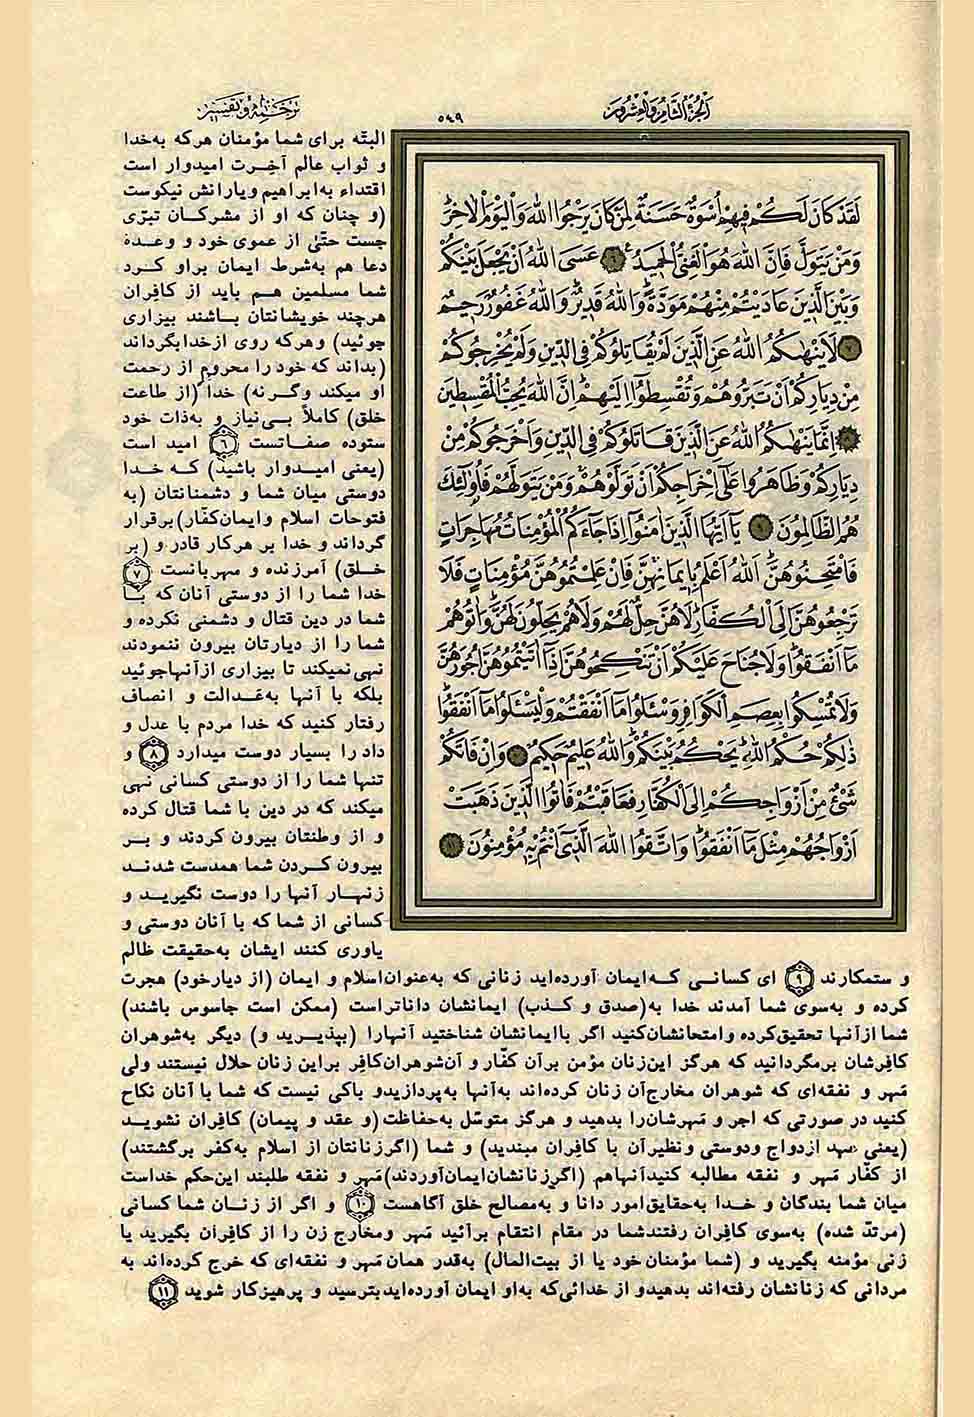 الجزء الثامن والعشرون
۵۴۹
ترجمه و تفسیر
لَقَدْ كَانَ لَكُمْ فِيهِمْ أُسْوَةٌ حَسَنَةٌ لِمَنْ كَانَ يَرْجُوا اللّٰهَ وَالْيَوْمَ الْآخِرَ
وَمَنْ يَتَوَلَّ فَإِنَّ اللّٰهَ هُوَ الْغَنِيُّ الْحَمِيدُ ۶ عَسَى اللّٰهُ أَنْ يَجْعَلَ بَيْنَكُمْ
وَبَيْنَ الَّذِينَ عَادَيْتُمْ مِنْهُمْ مَوَدَّةً وَاللّٰهُ قَدِيرٌ وَاللّٰهُ غَفُورٌ رَحِيمٌ
۷ لَا يَنْهٰيكُمُ اللّٰهُ عَنِ الَّذِينَ لَمْ يُقَاتِلُوكُمْ فِي الدِّينِ وَلَمْ يُخْرِجُوكُمْ
مِنْ دِيَارِكُمْ أَنْ تَبَرُّوهُمْ وَتُقْسِطُوا إِلَيْهِمْ إِنَّ اللّٰهَ يُحِبُّ الْمُقْسِطِينَ
۸ إِنَّمَا يَنْهٰيكُمُ اللّٰهُ عَنِ الَّذِينَ قَاتَلُوكُمْ فِي الدِّينِ وَأَخْرَجُوكُمْ مِنْ
دِيَارِكُمْ وَظَاهَرُوا عَلٰى إِخْرَاجِكُمْ أَنْ تَوَلَّوْهُمْ وَمَنْ يَتَوَلَّهُمْ فَأُولٰئِكَ
هُمُ الظَّالِمُونَ ۹ يَا أَيُّهَا الَّذِينَ اٰمَنُوا إِذَا جَاءَكُمُ الْمُؤْمِنَاتُ مُهَاجِرَاتٍ
فَامْتَحِنُوهُنَّ اللّٰهُ أَعْلَمُ بِإِيمَانِهِنَّ فَإِنْ عَلِمْتُمُوهُنَّ مُؤْمِنَاتٍ فَلَا
تَرْجِعُوهُنَّ إِلَى الْكُفَّارِ لَا هُنَّ حِلٌّ لَهُمْ وَلَا هُمْ يَحِلُّونَ لَهُنَّ وَاٰتُوهُمْ
مَا أَنْفَقُوا وَلَا جُنَاحَ عَلَيْكُمْ أَنْ تَنْكِحُوهُنَّ إِذَا اٰتَيْتُمُوهُنَّ أُجُورَهُنَّ
وَلَا تُمْسِكُوا بِعِصَمِ الْكَوَافِرِ وَسْئَلُوا مَا أَنْفَقْتُمْ وَلْيَسْئَلُوا مَا أَنْفَقُوا
ذٰلِكُمْ حُكْمُ اللّٰهِ يَحْكُمُ بَيْنَكُمْ وَاللّٰهُ عَلِيمٌ حَكِيمٌ ۱۰ وَإِنْ فَاتَكُمْ
شَيْءٌ مِنْ أَزْوَاجِكُمْ إِلَى الْكُفَّارِ فَعَاقَبْتُمْ فَاٰتُوا الَّذِينَ ذَهَبَتْ
أَزْوَاجُهُمْ مِثْلَ مَا أَنْفَقُوا وَاتَّقُوا اللّٰهَ الَّذِي أَنْتُمْ بِهِ مُؤْمِنُونَ ۱۱
البتّه برای شما مؤمنان هرکه به‌خدا
و ثواب عالم آخرت امیدوار است
اقتداء به‌ابراهیم ویارانش نیکوست
(و چنان که او از مشرکان تبرّی
جست حتّیٰ از عموی خود و وعدهٔ
دعا هم به‌شرط ایمان براو کرد
شما مسلمین هم باید از کافران
هرچند خویشانتان باشند بیزاری
جوئید) وهرکه روی ازخدابگرداند
(بداند که خود را محروم از رحمت
او میکند وگرنه) خدا (از طاعت
خلق) کاملاً بی‌نیاز و به‌ذات خود
ستوده صفاتست ۶ امید است
(یعنی امیدوار باشید) که خدا
دوستی میان شما و دشمنانتان (به
فتوحات اسلام وایمان‌کفّار)برقرار
گرداند و خدا بر هرکار قادر و (بر
خلق) آمرزنده و مهربانست ۷
خدا شما را از دوستی آنان که با
شما در دین قتال و دشمنی نکرده و
شما را از دیارتان بیرون ننمودند
نهی‌نمیکند تا بیزاری ازآنهاجوئید
بلکه با آنها به‌عَدالت و انصاف
رفتار کنید که خدا مردم با عدل و
داد را بسیار دوست میدارد ۸ و
تنها شما را از دوستی کسانی نهی
میکند که در دین با شما قتال کرده
و از وطنتان بیرون کردند و بر
بیرون کردن شما همدست شدند
زنهار آنها را دوست نگیرید و
کسانی از شما که با آنان دوستی و
یاوری کنند ایشان به‌حقیقت ظالم
و ستمکارند ۹ ای کسانی که‌ایمان آورده‌اید زنانی که به‌عنوان‌اسلام و ایمان (از دیارخود) هجرت
کرده و به‌سوی شما آمدند خدا به(صدق و کذب) ایمانشان داناتراست (ممکن است جاسوس باشند)
شما ازآنها تحقیق‌کرده وامتحانشان‌کنید اگر باایمانشان شناختید آنهارا (بپذیرید و) دیگر به‌شوهران
کافرشان برمگردانید که هرگز این‌زنان مؤمن برآن کفّار و آن‌شوهران‌کافر براین زنان حلال نیستند ولی
مَهر و نفقه‌ای که شوهران مخارج‌آن زنان کرده‌اند به‌آنها به‌پردازیدو باکی نیست که شما با آنان نکاح
کنید در صورتی که اجر و مَهرشان‌را بدهید و هرگز متوسّل به‌حفاظت (و عقد و پیمان) کافران نشوید
(یعنی عهد ازدواج ودوستی ونظیرآن با کافران مبندید) و شما (اگرزنانتان از اسلام به‌کفر برگشتند)
از کفّار مَهر و نفقه مطالبه کنیدآنهاهم (اگرزنانشان‌ایمان‌آوردند)مَهر و نفقه طلبند این‌حکم خداست
میان شما بندگان و خدا به‌حقایق‌امور دانا و به‌مصالح خلق آگاهست ۱۰ و اگر از زنان شما کسانی
(مرتدّ شده) به‌سوی کافران رفتندشما در مقام انتقام برآئید مَهر ومخارج زن را از کافران بگیرید یا
زنی مؤمنه بگیرید و (شما مؤمنان خود یا از بیت‌المال) به‌قدر همان مَهر و نفقه‌ای که خرج کرده‌اند به
مردانی که زنانشان رفته‌اند بدهیدو از خدائی‌که به‌او ایمان آورده‌ایدبترسید و پرهیزکار شوید ۱۱